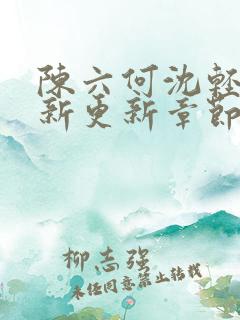 陳六何沈輕
新更新章節
柳志强
未经同意禁止转载